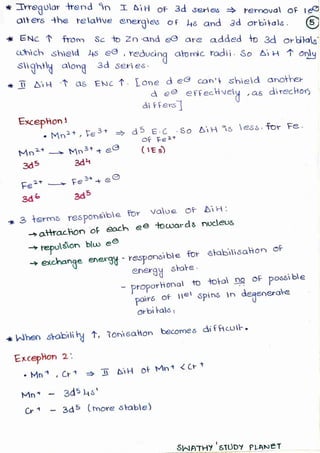 * Irregular trend in I ΔiH of 3d series ⇒ removal of 1e⊖
alters the relative energies of 4s and 3d orbitals. ⑤
* ENC ↑ from Sc to Zn and e⊖ are added to 3d orbitals
which shield 4s e⊖, reducing atomic radii. So ΔiH ↑ only
slightly along 3d series.
* II ΔiH ↑ as ENC ↑. [one d e⊖ can't shield another
d e⊖ effectively, as direction
differs]
Exception 1
• Mn2+, Fe3+ ⇒ d5 E.C. So ΔiH is less for Fe.
of Fe2+
Mn2+ → Mn3+ + e⊖ (IE3)
3d5 3d4
Fe2+ → Fe3+ + e⊖
3d6 3d5
* 3 terms responsible for value of ΔiH:
→ attraction of each e⊖ towards nucleus
→ repulsion b/w e⊖
→ exchange energy - responsible for stabilisation of
energy state.
- proportional to total no of possible
pairs of ||el spins in degenerate
orbitals.
* When stability ↑, ionisation becomes difficult.
Exception 2:
• Mn+, Cr+ ⇒ II ΔiH of Mn+ < Cr+
Mn+ - 3d5 4s1
Cr+ - 3d5 (more stable)
SWATHY'S STUDY PLANET